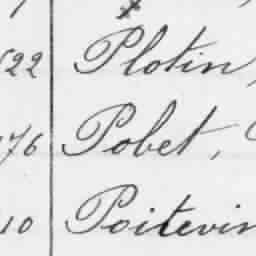 622 Plotin,
76 Pobet,
10 Poitevin